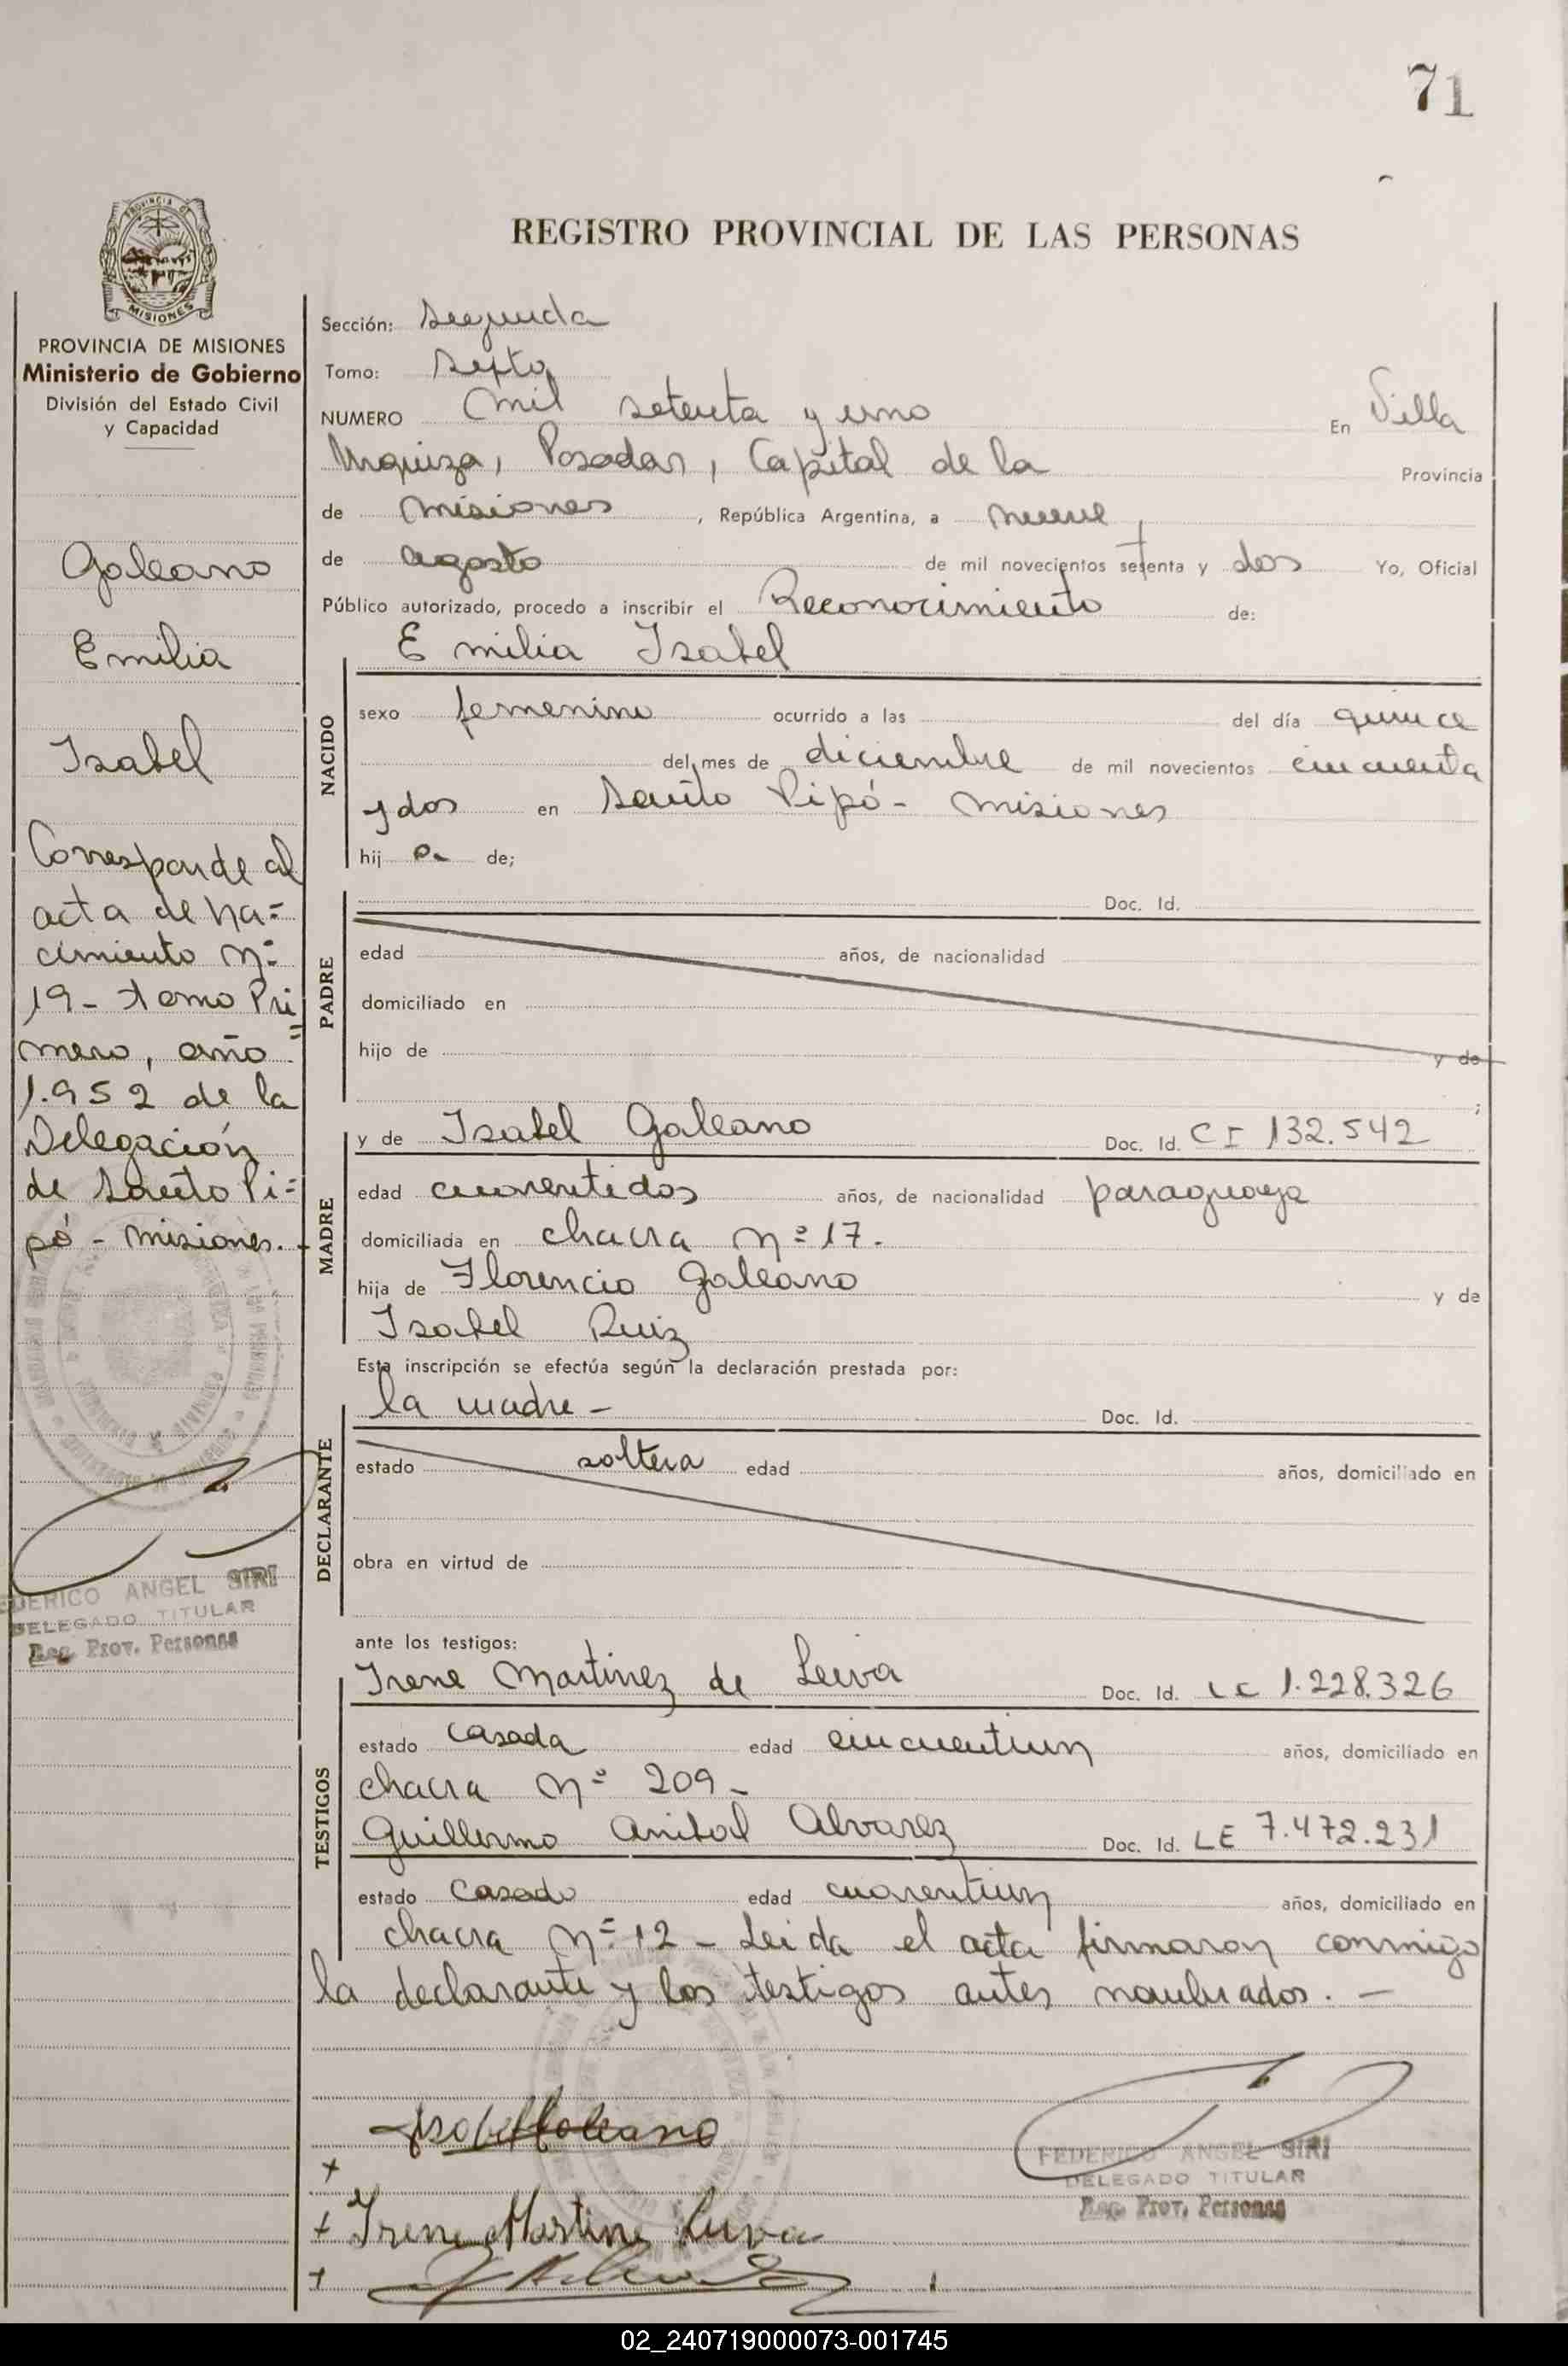 71
PROVINCIA DE
MISIONES
PROVINCIA DE MISIONES
Ministerio de Gobierno
División del Estado Civil
y Capacidad
Galeano
Emilia
Isabel
Corresponde al
acta de na=
cimiento Nº
19- tomo Pri=
mero, año
1.952 de la
Delegación
de Santo Pi=
pó - Misiones.
FEDERICO ANGEL SIRI
DELEGADO TITULAR
Reg. Prov. Personas
REGISTRO PROVINCIAL DE LAS PERSONAS
Sección: Segunda
Tomo: Septo
NUMERO Mil setenta y uno En Villa
Urquiza, Posadas, Capital de la Provincia
de Misiones, República Argentina, a nueve
de agosto de mil novecientos setenta y dos Yo, Oficial
Público autorizado, procedo a inscribir el Reconocimiento de:
Emilia Isabel
NACIDO
sexo femenino ocurrido a las del día quince
del mes de diciembre de mil novecientos cincuenta
y dos en Santo Pipó - Misiones
hij a de;
PADRE
Doc. Id.
edad años, de nacionalidad
domiciliado en
hijo de y de
;
MADRE
y de Isabel Galeano Doc. Id. CI 132.542
edad cuarentidos años, de nacionalidad paraguaya
domiciliada en chacra Nº 17.
hija de Florencio Galeano y de
Isabel Ruiz
Esta inscripción se efectúa según la declaración prestada por:
DECLARANTE
la madre - Doc. Id.
estado soltera edad años, domiciliado en
obra en virtud de
ante los testigos:
TESTIGOS
Irene Martinez de Leiva Doc. Id. LC 1.228.326
estado casada edad cincuentiun años, domiciliado en
chacra Nº 209-
Guillermo Anibal Alvarez Doc. Id. LE 7.472.231
estado casado edad cuarentiun años, domiciliado en
chacra Nº 12 - Leida el acta firmaron conmigo
la declarante y los testigos antes nombrados. -
Isabel Galeano
Irene Martine Leiva
FEDERICO ANGEL SIRI
DELEGADO TITULAR
Reg. Prov. Personas
02_240719000073-001745